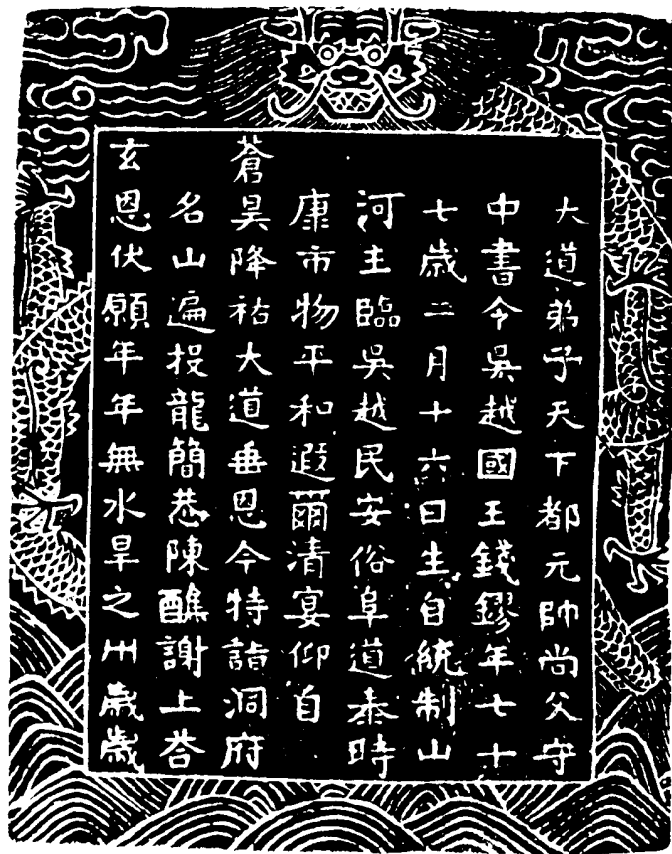 大道弟子天下都元帥尚父守
中書令吳越國王錢鏐年七十
七歲二月十六日生自統制山
河主臨吳越民安俗阜道泰時
康市物平和遐爾清宴仰自
蒼昊降祐大道垂恩今特詣洞府
名山遍投龍簡恭陳醮謝上荅
玄恩伏願年年無水旱之州歲歲